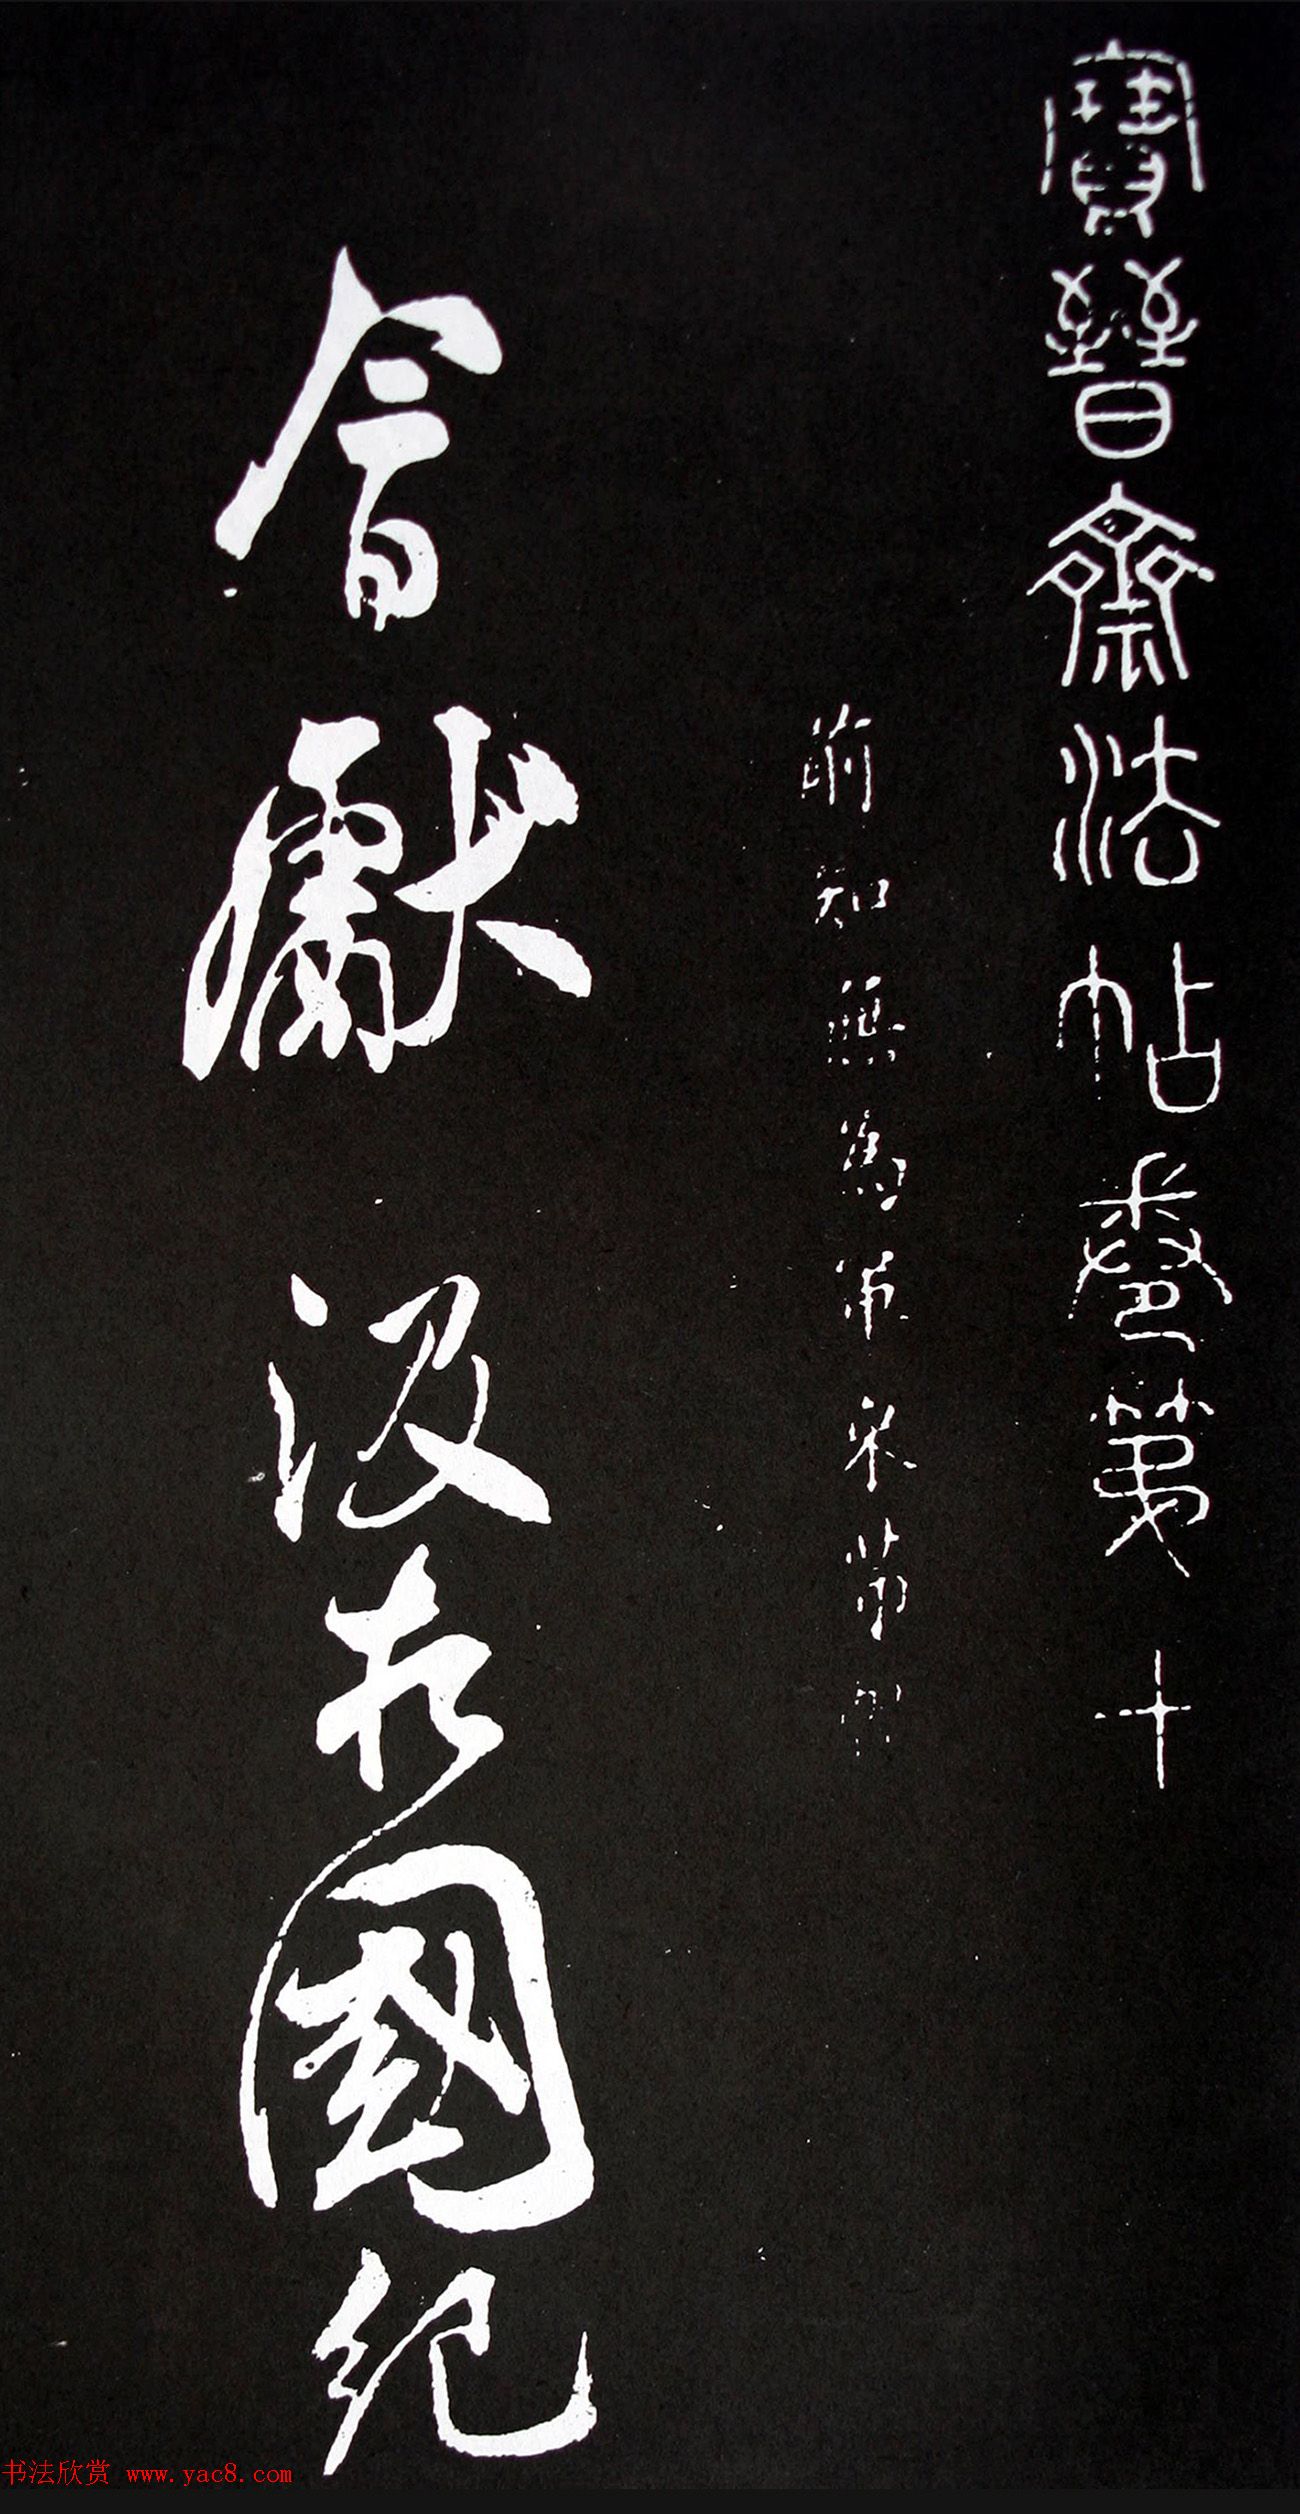 寶晉齋法帖卷第十
前知無為軍米芾
會獻汲太國紀
书法欣赏 www.yac8.com